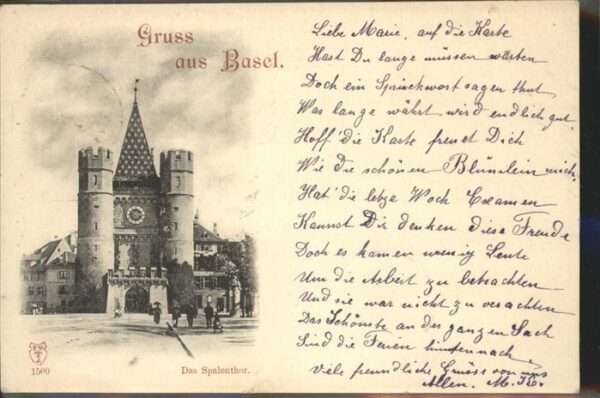 Gruss
aus Basel.
Liebe Marie, auf die Karte
Hast Du lange müssen warten
Doch ein Sprüchwort sagen thut,
Was lange währt wird endlich gut.
Hoff' die Karte freut Dich
Wie die schönen Blümlein mich.
Hat' die letze Woch Examen
Kannst Dir denken diese Freude
Doch es kamen wenig Leute
Um die Arbeit zu betrachten
Und sie war nicht zu verachten
Das Schönste an der ganzen Sach
Sind die Ferien hintennach
Viele freundliche Grüsse von uns
Allen. M.
1500
Das Spalenthor.